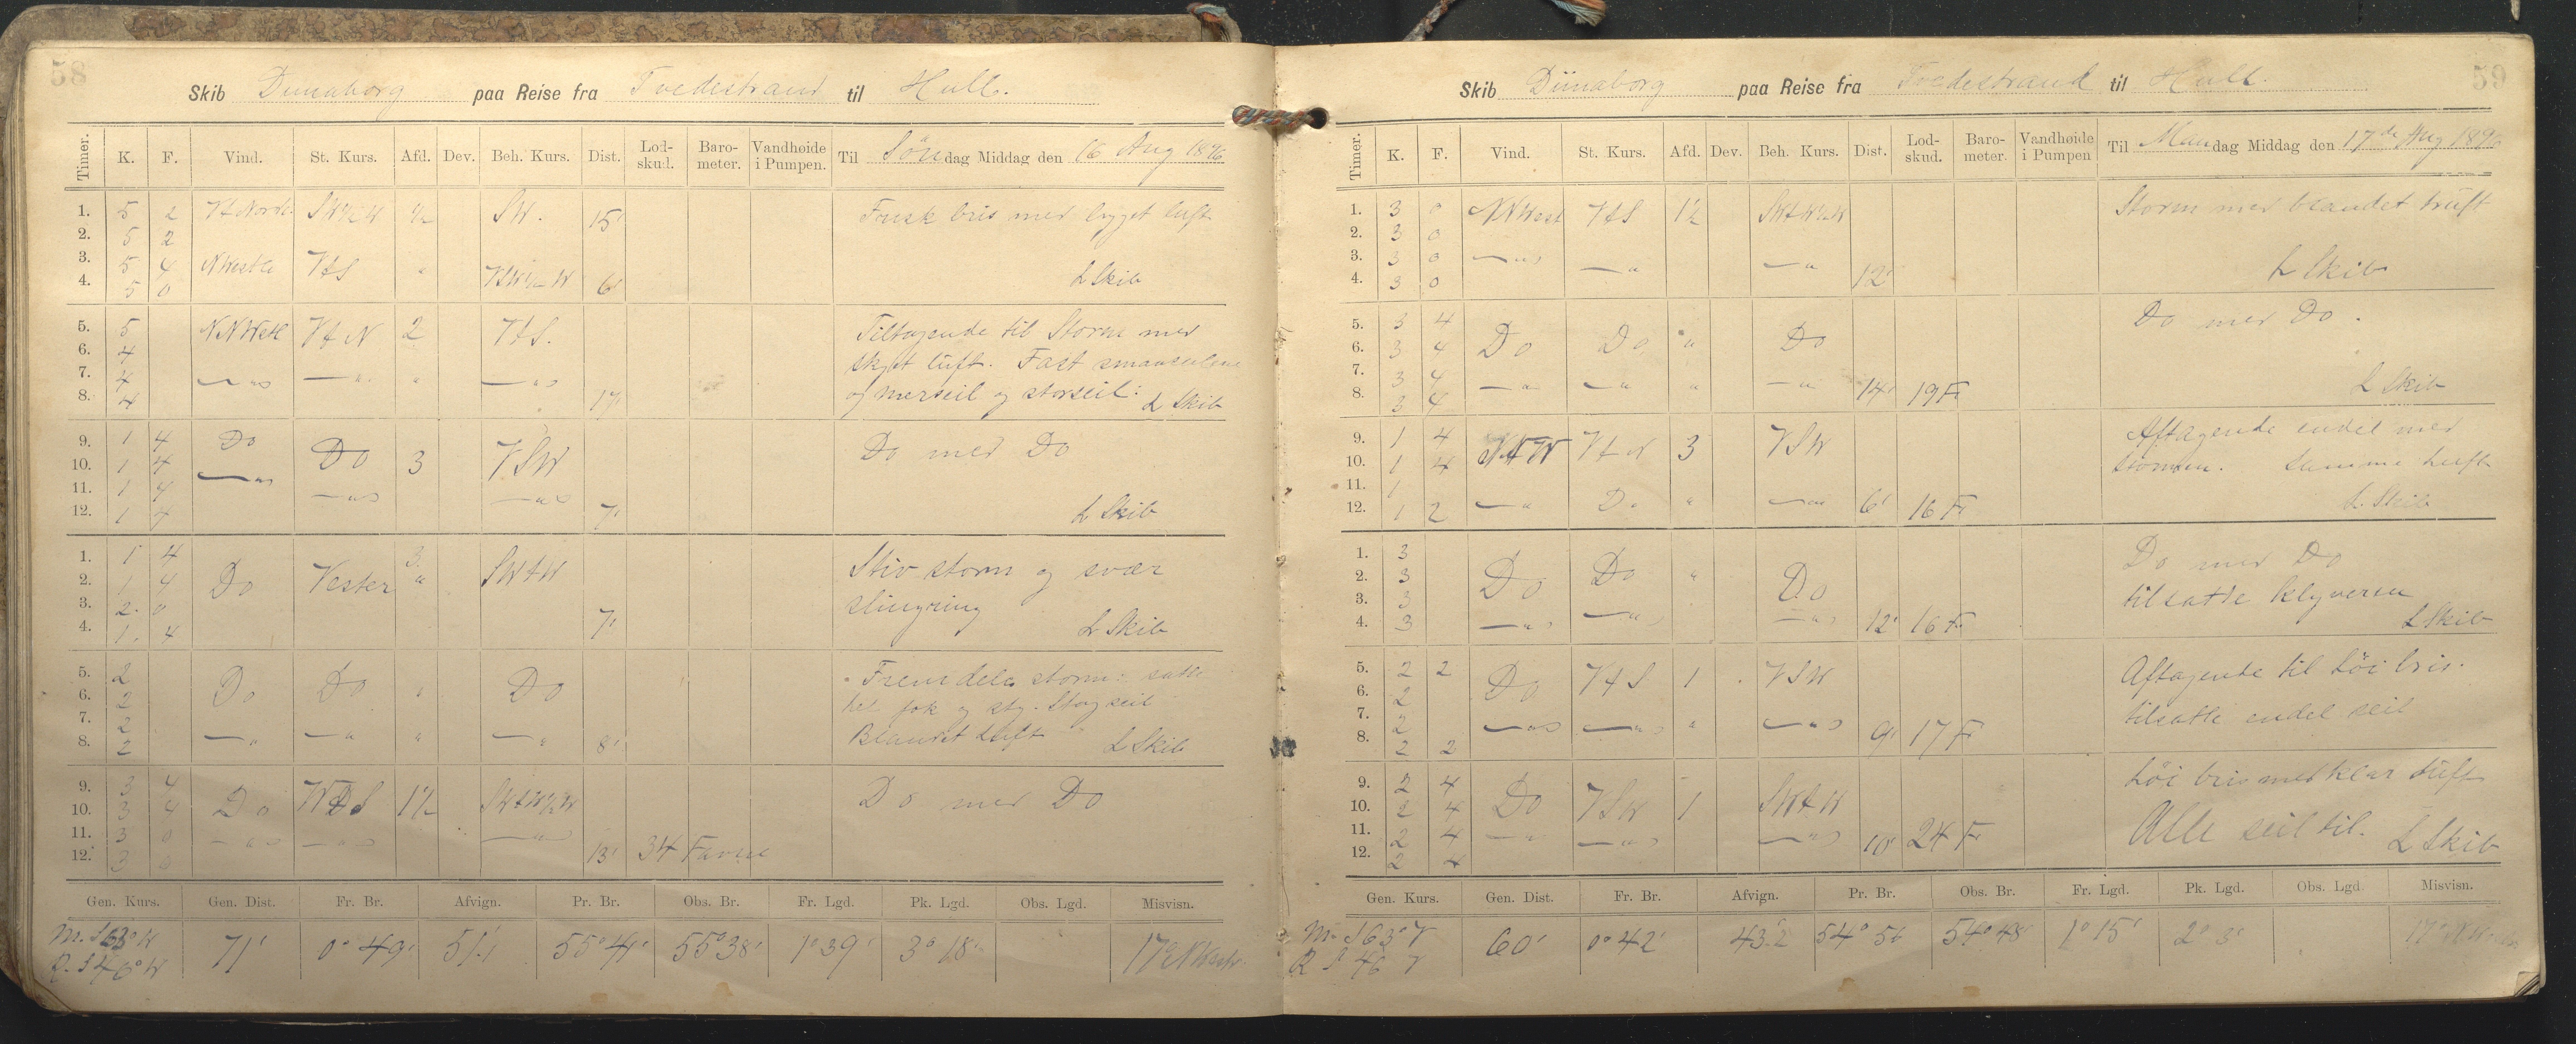 58
Skib Dunaborg paa Reise fra Tvedestrand til Hull.
Timer. K. F. Vind. St. Kurs. Afd. Dev. Beh. Kurs. Dist. Lod-skud. Baro-meter. Vandhøide i Pumpen. Til Søndag Middag den 16 Aug 1896
1. 5 2 SW½W ½ SW. 15' Frisk bris med bygget luft
2. 5 2
3. 5 4 VtS "
4. 5 0 6' L Skib
5. 5 VtN 2 VtS. Tiltagende til Storm med
6. 4 skyet luft. Fast smaaseilene
7. 4 og merseil og storseil:
8. 4 17' L Skib
9. 1 4 Do Do 3 VSW Do med Do
10. 1 4
11. 1 4
12. 1 4 7' L Skib
1. 1 4 Do Vester 3. SWtW Stiv storm og svær
2. 1 4 " slingring
3. 2 0
4. 1 4 7' L Skib
5. 2 Do Do " Do Fremdeles storm: satte
6. 2 fok og Stagseil
7. 2 Blandet Luft
8. 2 " 8' L Skib
9. 3 4 Do 1½ SWtW½W Do med Do
10. 3 4
11. 3 0
12. 3 0 13' 34 Favne
Gen. Kurs. Gen. Dist. Fr. Br. Afvign. Pr. Br. Obs. Br. Fr. Lgd. Pk. Lgd. Obs. Lgd. Misvisn.
m. S 63° W 71' 0° 49' 51,1 55° 41' 55° 38' 1° 39' 3° 18'
R. S 46° W
59
Skib Dünaborg paa Reise fra Tvedestrand til Hull.
Timer. K. F. Vind. St. Kurs. Afd. Dev. Beh. Kurs. Dist. Lod-skud. Baro-meter. Vandhøide i Pumpen Til Mandag Middag den 17de Aug 1896
1. 3 0 NNWest VtS 1½ SWtW½W Storm med blandet luft
2. 3 0
3. 3 0
4. 3 0 12' L Skib
5. 3 4 Do Do " Do Do med Do.
6. 3 4
7. 3 4
8. 3 4 14' 19 Fv L Skib
9. 1 4 VtN 3 VSW Aftagende endel med
10. 1 4 stormen. Samme luft
11. 1
12. 1 2 Do " 6' 16 Fv L. Skib
1. 3 Do Do " Do Do med Do
2. 3 tilsatte klyveren
3. 3
4. 3 12' 16 Fv L Skib
5. 2 2 Do VtS 1 VSW Aftagende til Løi bris.
6. 2 tilsatte endel seil
7. 2
8. 2 2 9' 17 Fv
9. 2 4 Do VSW 1 SWtW Løi bris med klar Luft
10. 2 4 Alle seil til.
11. 2 4
12. 2 4 10' 24 Fv L Skib
Gen. Kurs. Gen. Dist. Fr. Br. Afvign. Pr. Br. Obs. Br. Fr. Lgd. Pk. Lgd. Obs. Lgd. Misvisn.
m. S 63° V 60' 0° 42' 43.2 54° 56 54° 48' 1° 15' 2° 3'
R S 46 V